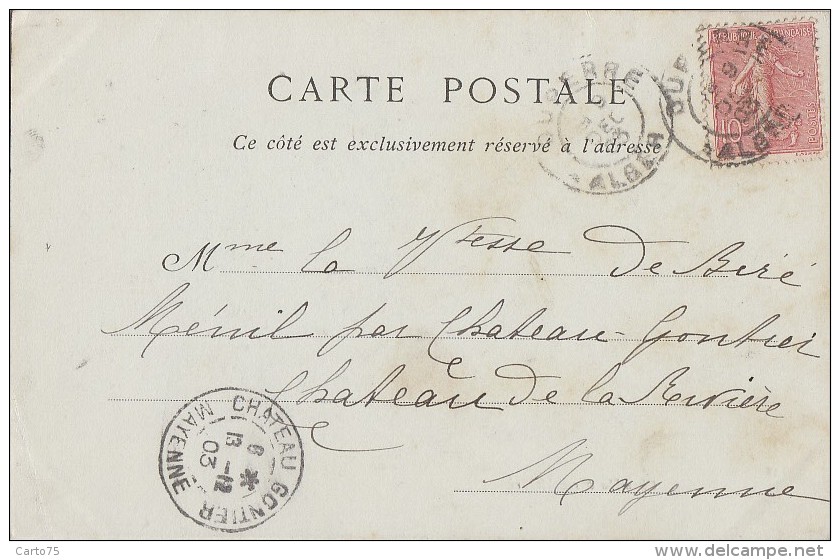 CARTE POSTALE
Ce côté est exclusivement réservé à l'adresse
RÉPUBLIQUE FRANÇAISE
10
POSTES
DUPERRÉ
ALGER
Mme la Vtesse de Biré
Ménil par Chateau-Gontier
Chateau de la Rivière
Mayenne
CHATEAU GONTIER
6 *
13 -12
03
MAYENNE
Carto75
www.delcampe.net